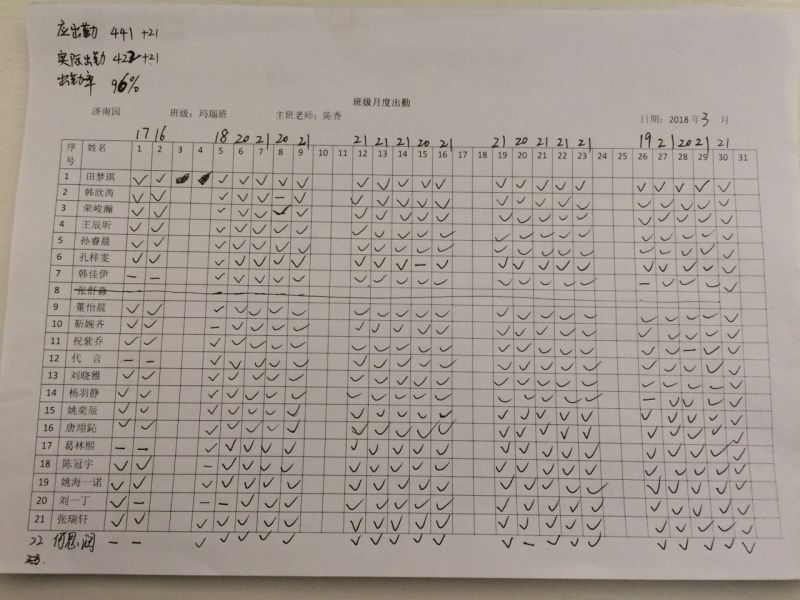 应出勤 441 +21
实际出勤 422 +21
出勤率 96%
班级月度出勤
济南园 班级：玛瑙班 主班老师：陈香 日期：2018年3月
17 16 18 20 21 20 21 21 21 21 20 21 21 20 21 21 21 19 21 20 21 21
序号 姓名 1 2 3 4 5 6 7 8 9 10 11 12 13 14 15 16 17 18 19 20 21 22 23 24 25 26 27 28 29 30 31
1 田梦琪
2 韩欣芮
3 荣峻瀚
4 王辰昕
5 孙睿晨
6 孔梓雯
7 韩佳伊
8 张舒淼
9 董怡晨
10 靳婉齐
11 祝紫乔
12 代 言
13 刘晓雅
14 杨羽静
15 姚奕辰
16 唐翊鈊
17 葛林熙
18 陈冠宇
19 姚海一诺
20 刘一丁
21 张瑞轩
22 何思润